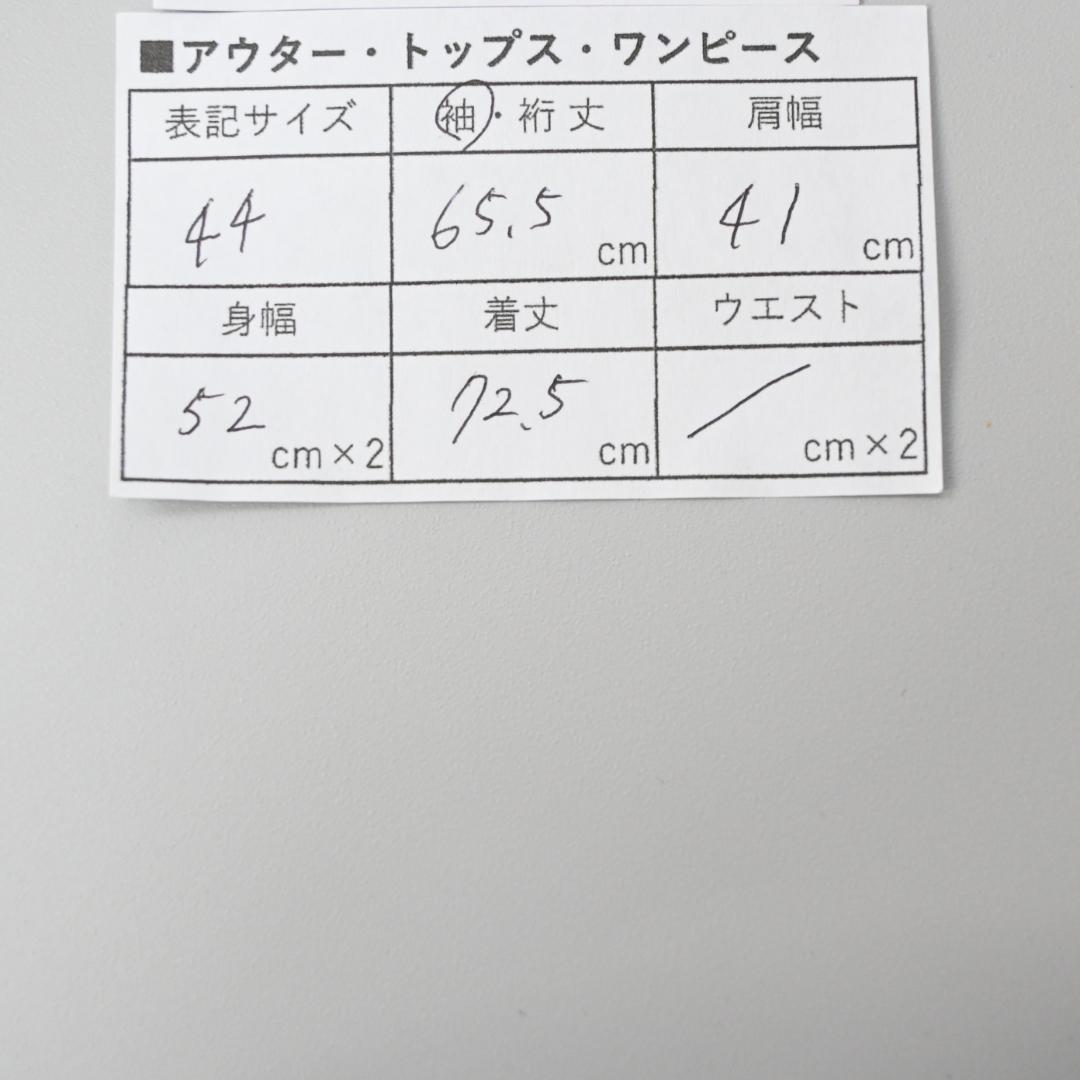 ■アウター・トップス・ワンピース
表記サイズ 袖・裄丈 肩幅
44 65.5 cm 41 cm
身幅 着丈 ウエスト
52 cm×2 72.5 cm / cm×2